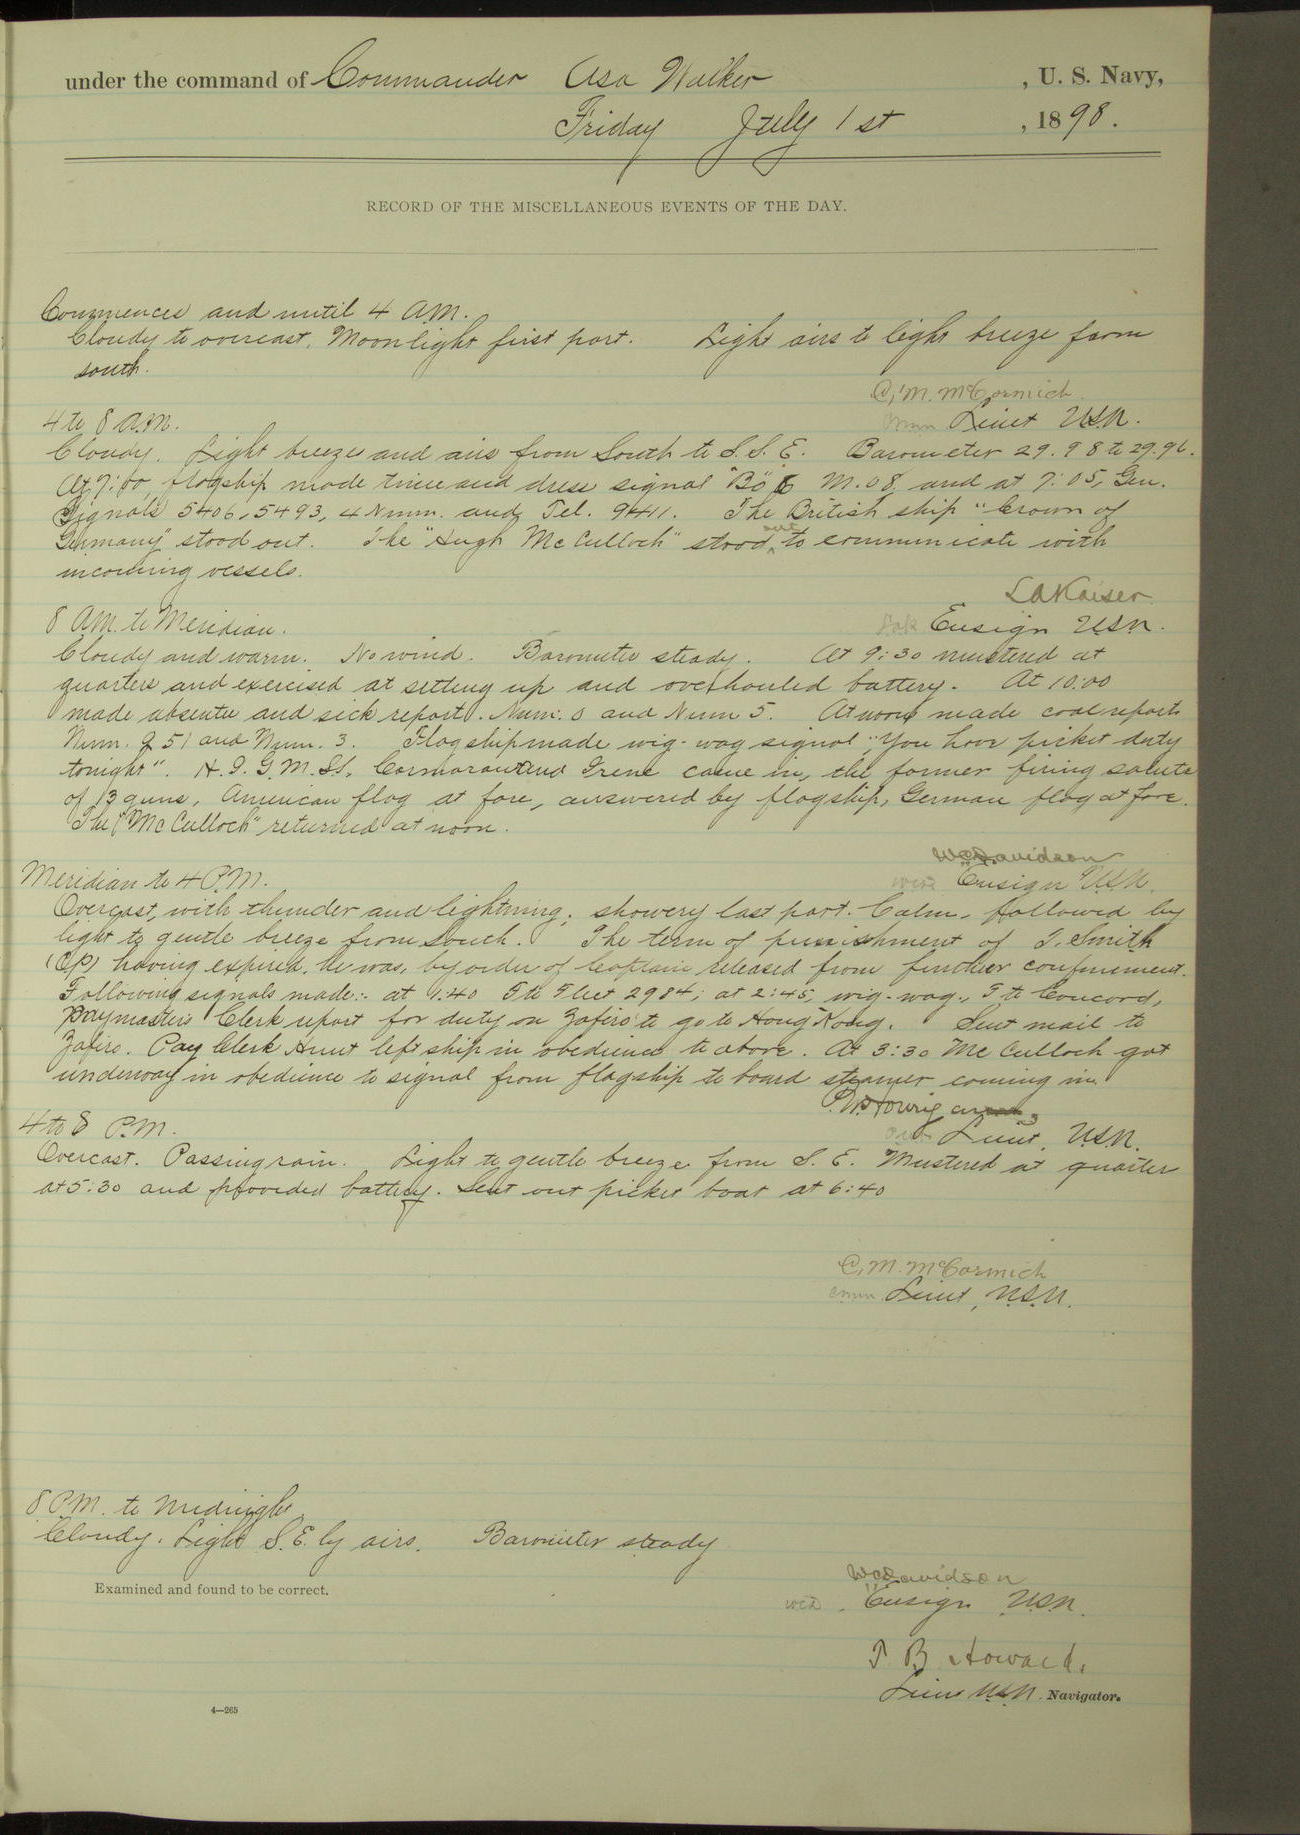 under the command of Commander Asa Walker, U. S. Navy,
Friday July 1st, 1898.
RECORD OF THE MISCELLANEOUS EVENTS OF THE DAY.
Commences and until 4 A.M.
Cloudy to overcast. Moonlight first part. Light airs to light breeze from
south.
C. M. McCormick
Lieut U.S.N.
4 to 8 A.M.
Cloudy. Light breezes and airs from South to S.S.E. Barometer 29.98 to 29.96.
At 7:00, flagship made time and dress signal M. 08, and at 7:05, Gen.
Signals 5406, 5493, 4 Num. and Tel. 9411. The British ship "Crown of
Germany" stood out. The "Hugh McCulloch" stood out to communicate with
incoming vessels.
L A Kaiser
Ensign U.S.N.
8 A.M. to Meridian.
Cloudy and warm. No wind. Barometer steady. At 9:30 mustered at
quarters and exercised at setting up and overhauled battery. At 10:00
made absentee and sick reports. Num. 0 and Num 5. At noon made coal report
Num. 251 and Num. 3. Flagship made wig-wag signal "You have picket duty
tonight". H.I.G.M.SS. Cormoran and Irene came in, the former firing salute
of 13 guns, American flag at fore, answered by flagship, German flag at fore.
The "McCulloch" returned at noon.
W C Davidson
Ensign U.S.N.
Meridian to 4 P.M.
Overcast, with thunder and lightning; showery last part. Calm, followed by
light to gentle breeze from South. The term of punishment of J. Smith
having expired, he was, by order of Captain released from further confinement.
Following signals made:- at 1:40 F to Fleet 2984; at 2:45, wig-wag., F to Concord,
Paymaster's Clerk report for duty on Zafiro to go to Hong Kong. Sent mail to
Zafiro. Pay Clerk Hunt left ship in obedience to above. At 3:30 McCulloch got
underway in obedience to signal from flagship to board steamer coming in.
P.W. Hourigan
Lieut, U.S.N.
4 to 8 P.M.
Overcast. Passing rain. Light to gentle breeze from S. E. Mustered at quarters
at 5:30 and provided battery. Sent out picket boat at 6:40
C. M. McCormick
cmm Lieut, U.S.N.
8 P.M. to Midnight
Cloudy. Light S.E.ly airs. Barometer steady
Examined and found to be correct.
W C Davidson
wcd Ensign U.S.N.
T B Howard.
Lieut U.S.N. Navigator.
4—265